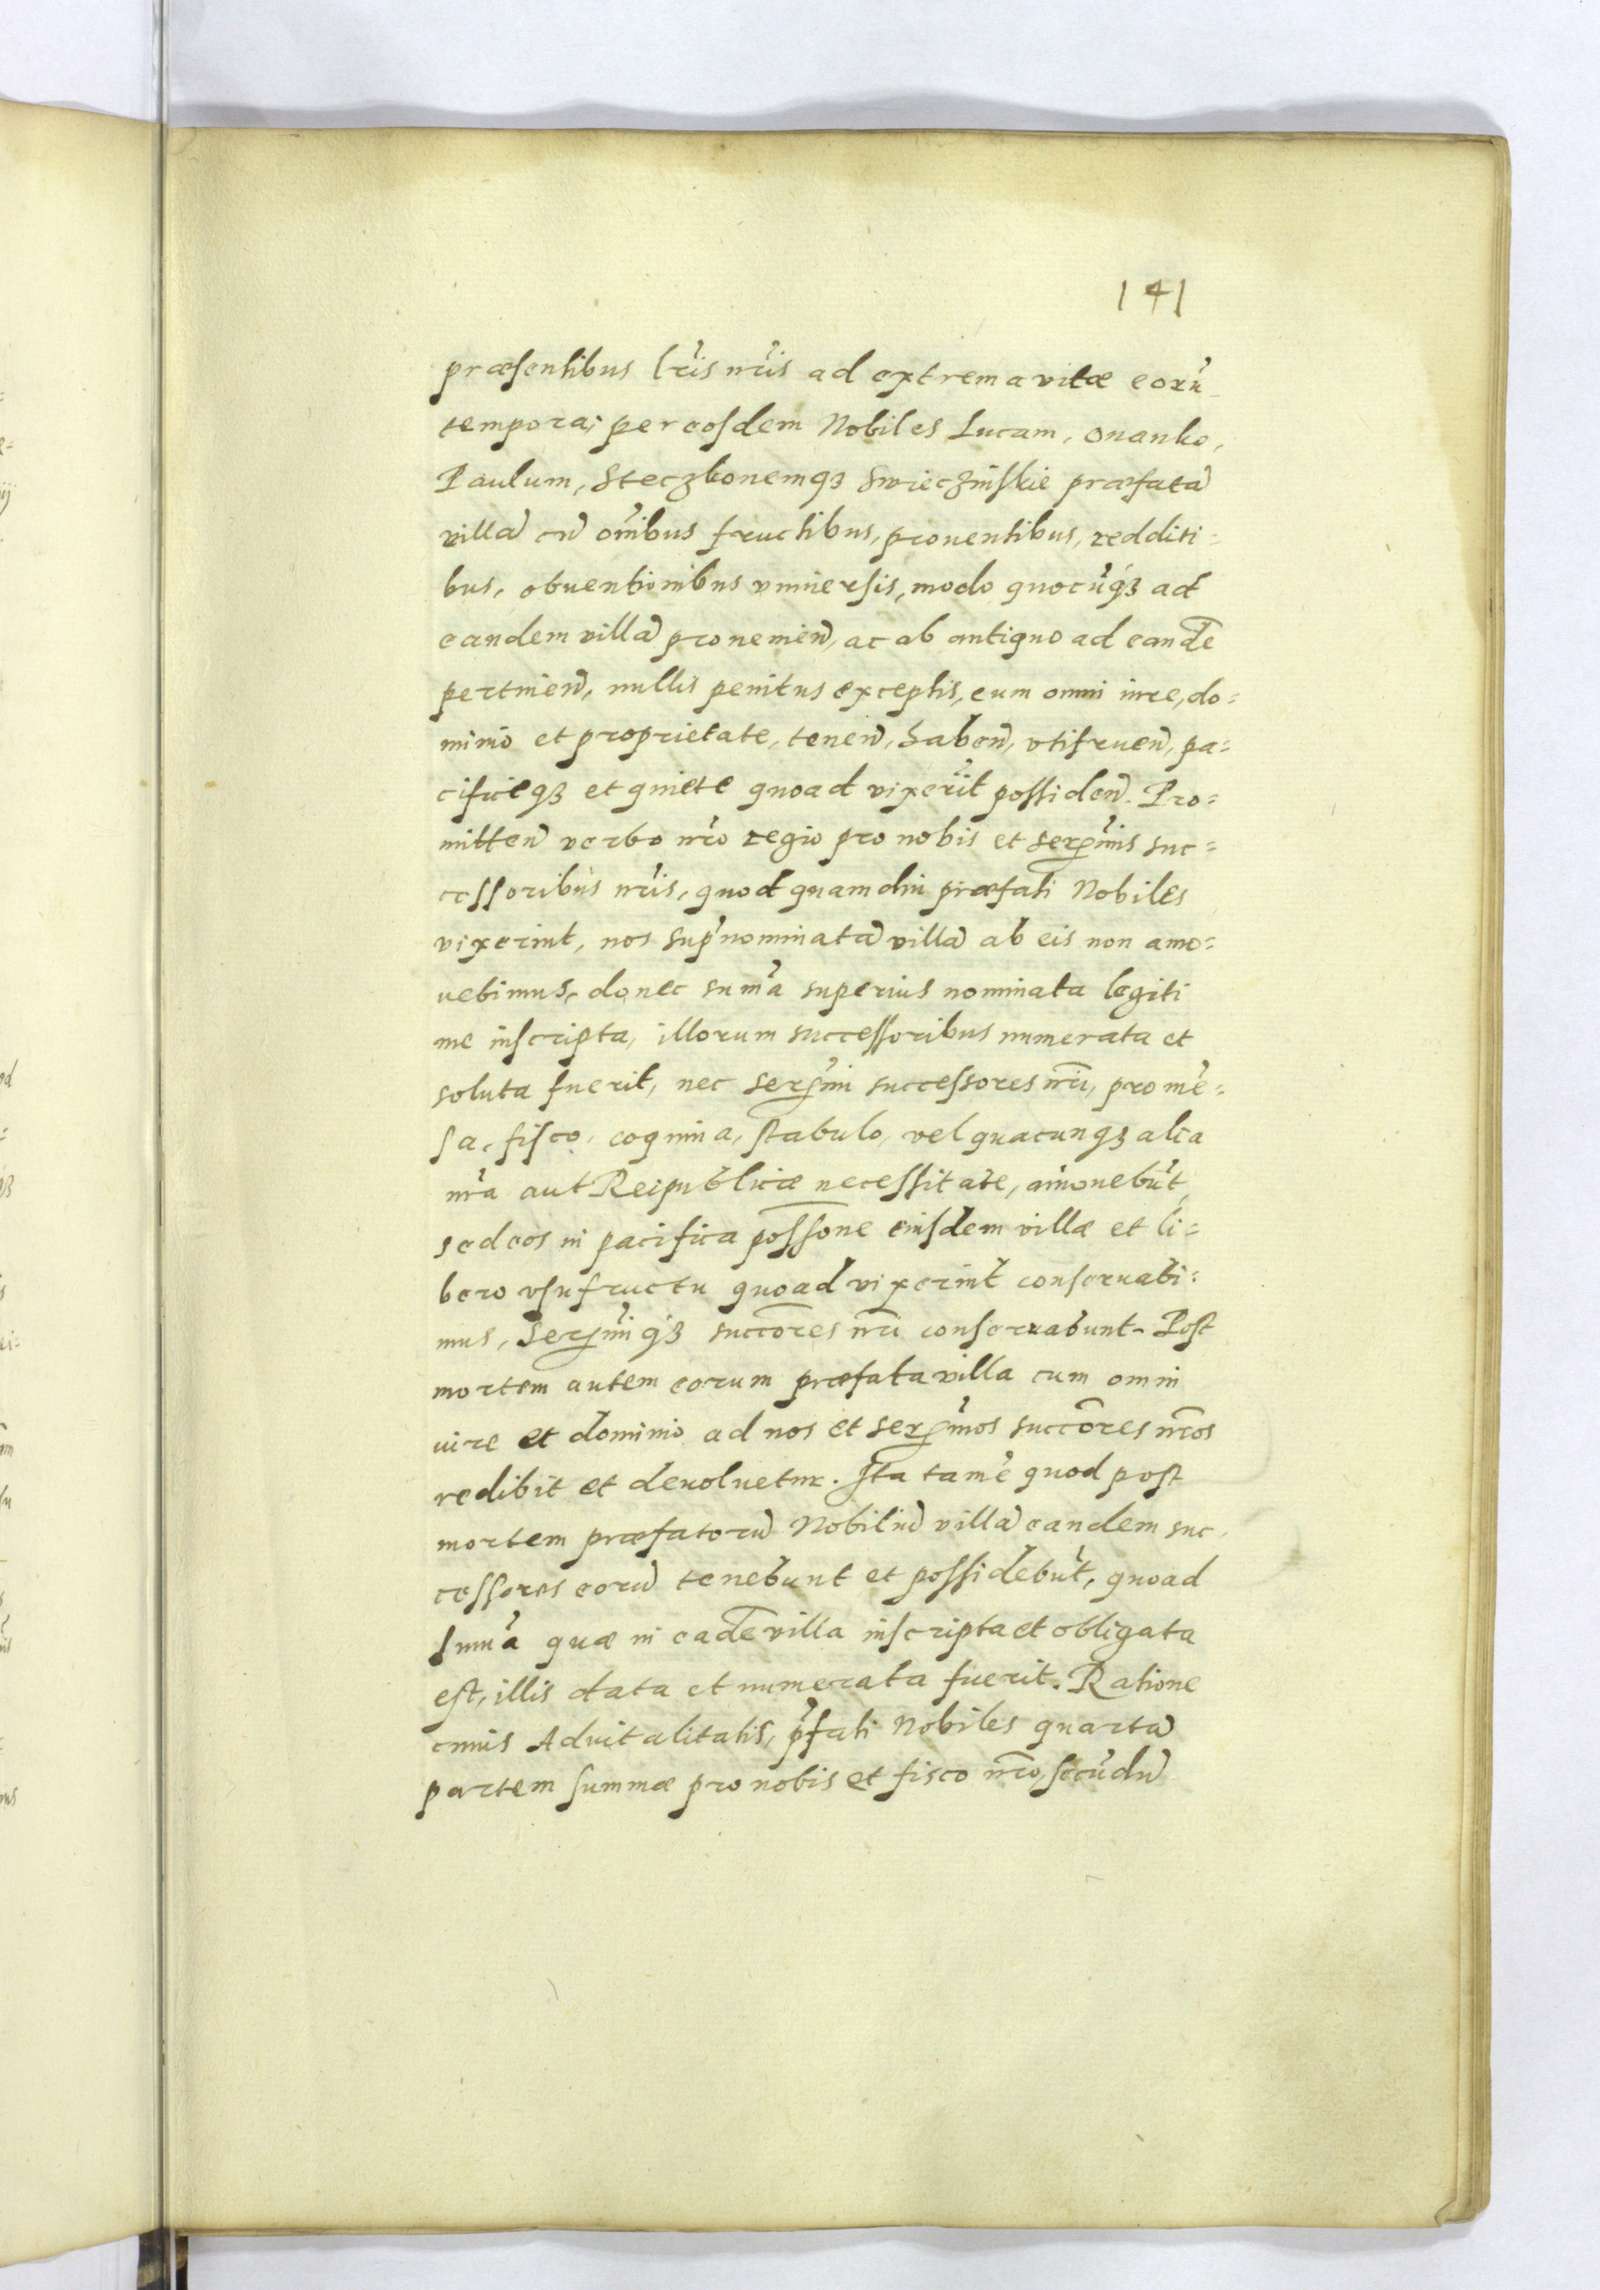 141
præsentibus lr̃is nr̃is ad extrema vitæ eorũ
tempora, per eosdem Nobiles Lucam, Onanko,
Paulum, Steczkonemqʒ Swieczinskie præfatã
villã cũ om̃ibus fructibus, prouentibus, redditi-
bus, obuentionibus vniuersis, modo quocũqʒ ad
eandem villã prouenieñ, ac ab antiquo ad eandẽ
pertinieñ, nullis penitus exceptis, cum omni iure, do-
minio et proprietate, teneñ, habeñ, vtifrueñ, pa-
cificeqʒ et quiete quoad vixerĩt possideñ. Pro-
mitteñ verbo nr̃o regio pro nobis et serẽmis suc-
cessoribus nr̃is, quod quamdiu præfati Nobiles
vixerint, nos sup̃nominatã villã ab eis non amo-
uebimus, donec sum̃a superius nominata legiti
me inscripta, illorum successoribus numerata et
soluta fuerit, nec serẽmi successores nr̃i, pro mẽ-
sa, fisco, coquina, stabulo, vel quacunqʒ alia
nr̃a aut Reipublicæ necessitate, amouebũt
sed eos in pacifica poss̃one eiusdem villæ et li-
bero vsufructu quoad vixerint conseruabi-
mus, serẽmiqʒ succõres nr̃i conseruabunt. Post
mortem autem eorum præfata villa cum omni
iure et dominio ad nos et serẽmos succõres nr̃os
redibit et deuoluetur. Ita tamẽ quod post
mortem præfatorũ Nobiliũ villã eandem suc
cessores eorũ tenebunt et possidebũt, quoad
sum̃a quæ in eadẽ villa inscripta et obligata
est, illis data et numerata fuerit. Ratione
cuius Aduitalitatis, p̃fati Nobiles quartã
partem summæ pro nobis et fisco nr̃o, secũdũ